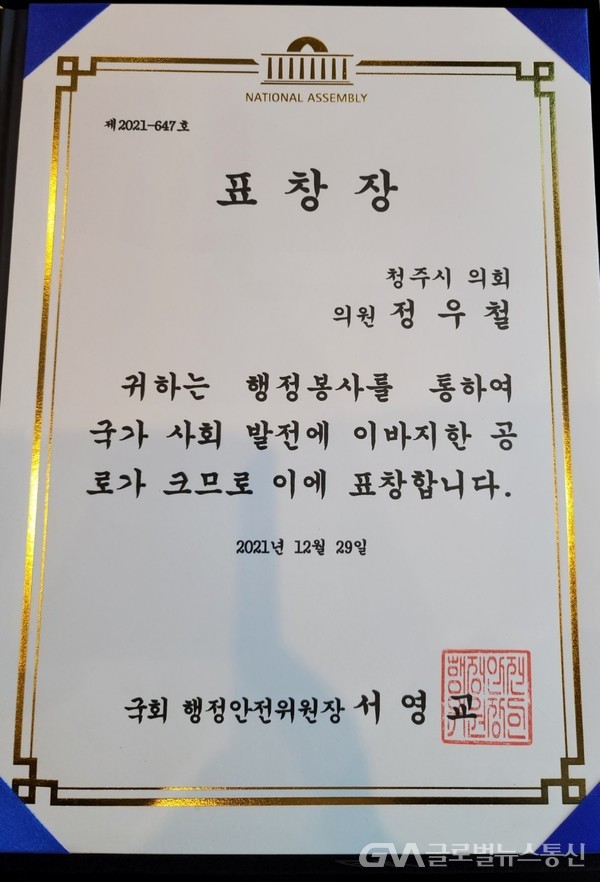 NATIONAL ASSEMBLY
제2021-647호
표창장
청주시 의회
의원 정우철
귀하는 행정봉사를 통하여
국가 사회 발전에 이바지한 공
로가 크므로 이에 표창합니다.
2021년 12월 29일
국회 행정안전위원장 서영교
행정안전
위원장의
GVA 글로벌뉴스통신